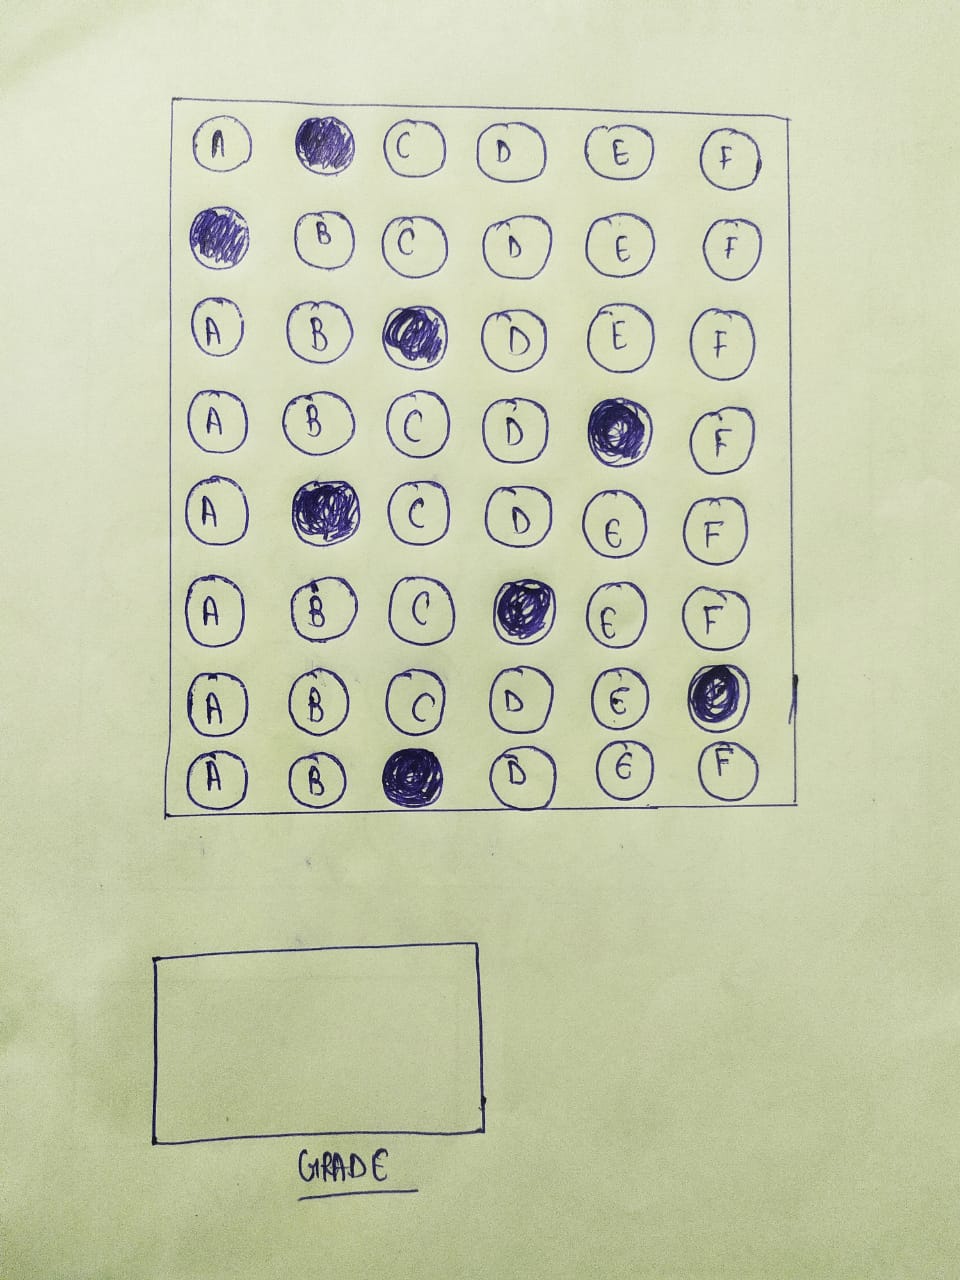 A C D E F
B C D E F
A B D E F
A B C D F
A B C D E F
A B C E F
A B C D E
A B D E F
GRADE